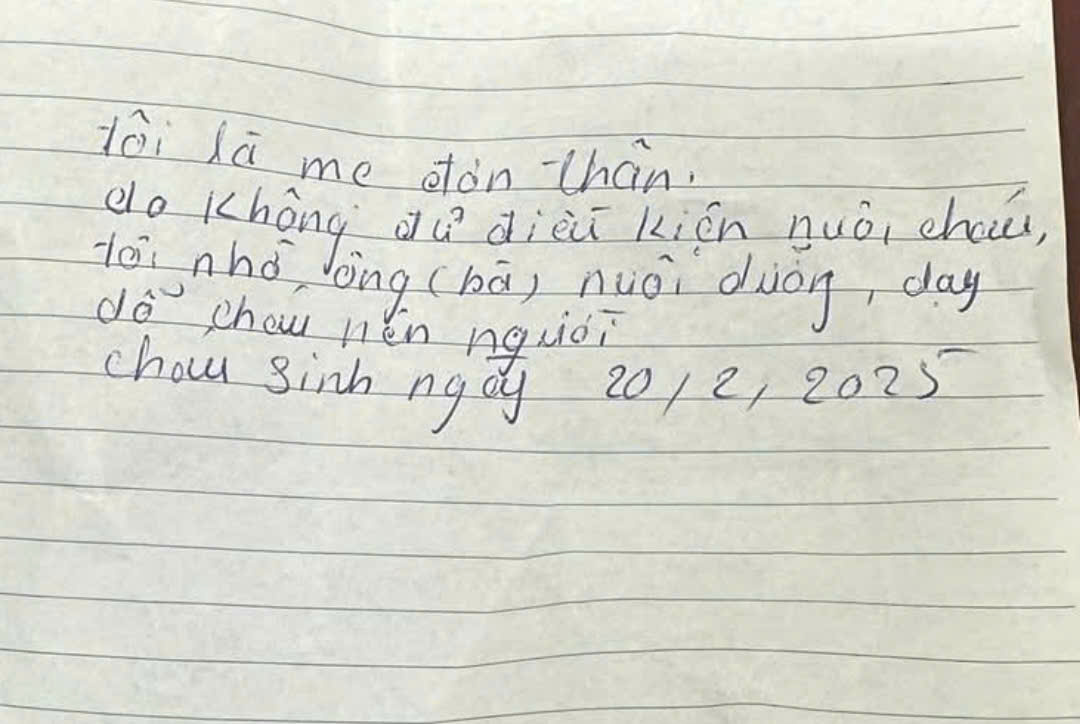 tôi là mẹ đơn thân.
do không đủ điều kiện nuôi cháu,
tôi nhờ ông (bà) nuôi dưỡng, dạy
dỗ cháu nên người
cháu sinh ngày 20/2/2025